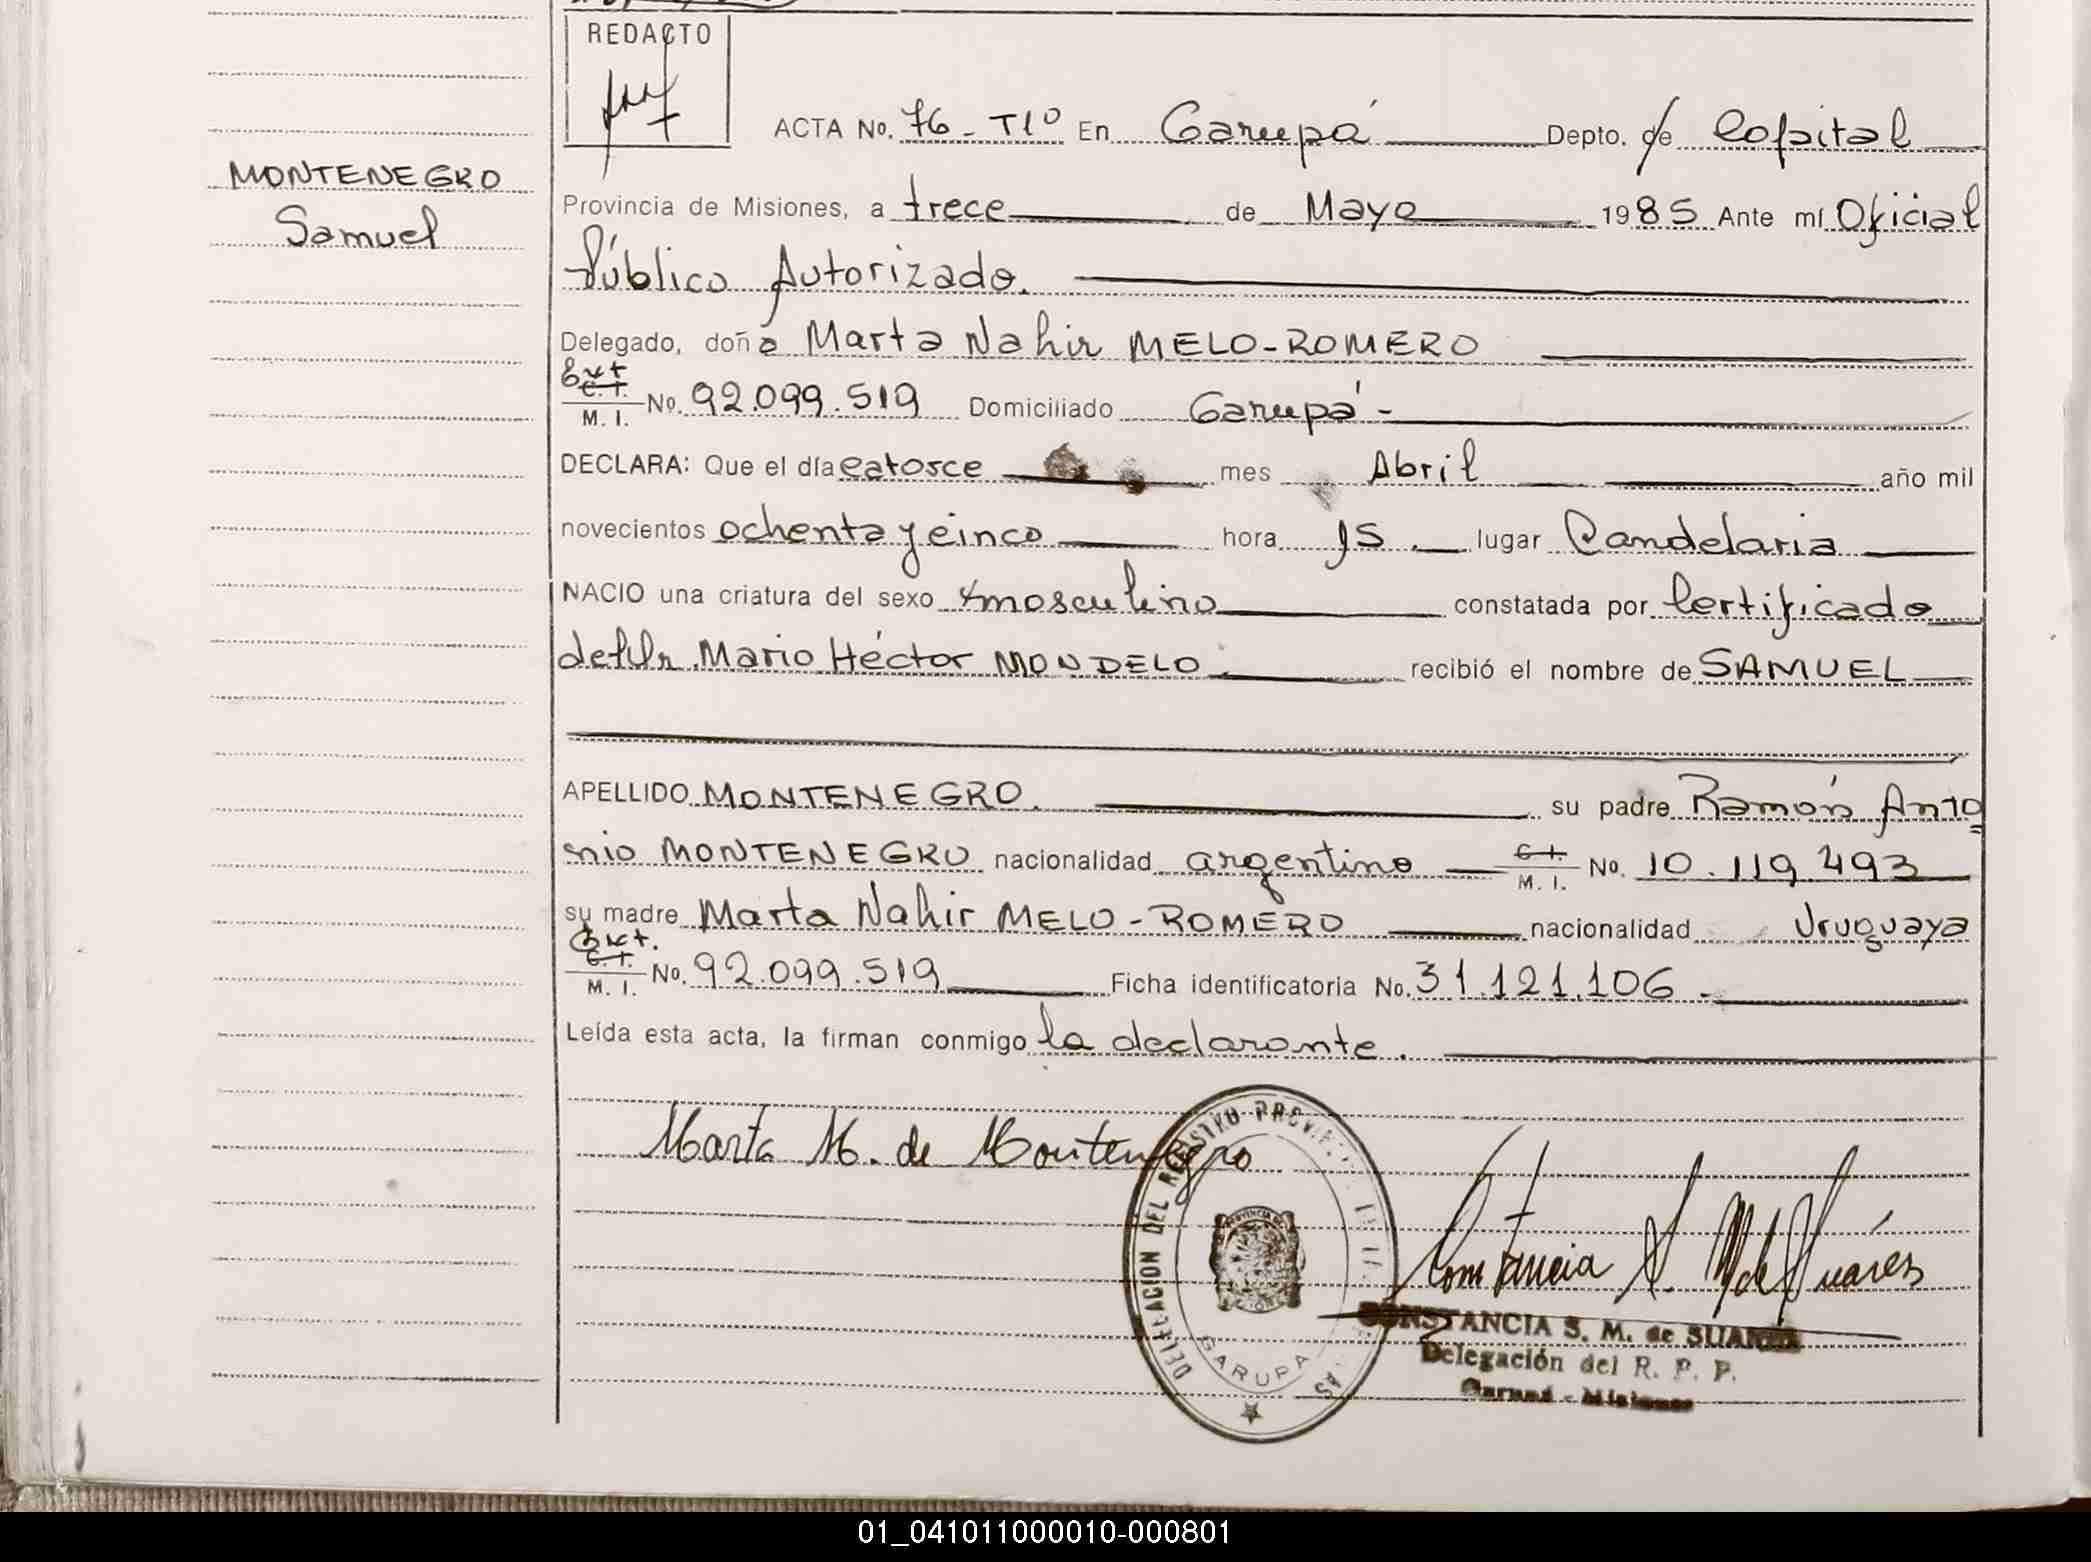 REDACTO
ACTA No. 76 - T1º En Garupá Depto. de Capital
MONTENEGRO
Samuel
Provincia de Misiones, a trece de Mayo 1985 Ante mí Oficial
Público Autorizado.
Delegado, doña Marta Nahir MELO-ROMERO
Ext
C. I.
M. I. No. 92.099.519 Domiciliado Garupá -
DECLARA: Que el día catosce mes Abril año mil
novecientos ochenta y cinco hora 15. lugar Candelaria
NACIO una criatura del sexo masculino constatada por Certificado
del Dr. Mario Héctor MONDELO recibió el nombre de SAMUEL
APELLIDO MONTENEGRO. su padre Ramón Anto
nio MONTENEGRO nacionalidad argentino C. I.
M. I. No. 10.119.493
su madre Marta Nahir MELO - ROMERO nacionalidad Uruguaya
Ext.
C. I.
M. I. No. 92.099.519 Ficha identificatoria No. 31.121.106 -
Leída esta acta, la firman conmigo la declarante.
Marta M. de Montenegro
DELEGACION DEL REGISTRO PROVINCIAL
PROVINCIA DE
MISIONES
GARUPA
Constancia S. M. de Suárez
CONSTANCIA S. M. de SUAREZ
Delegación del R. P. P.
Garupá - Misiones
01_041011000010-000801